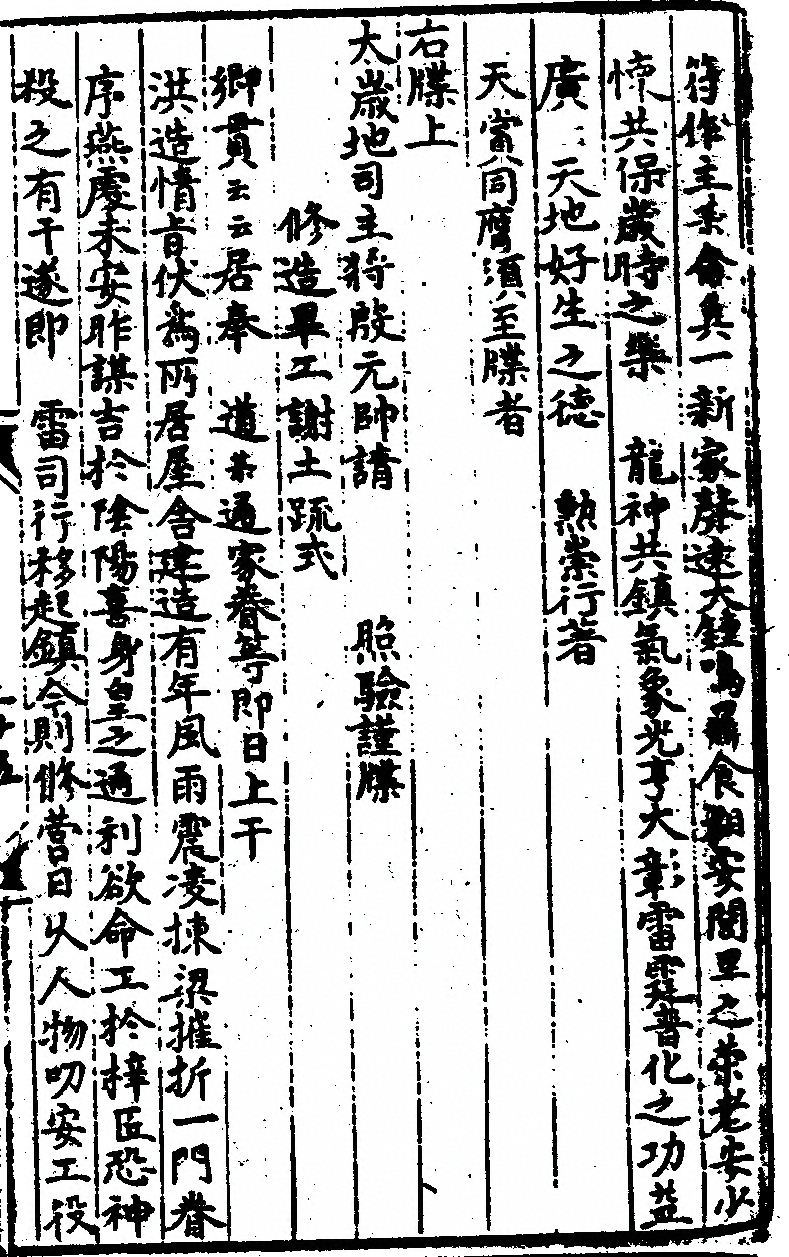 符作主某侖奐一新家聲逮大鐘鳴鼎食相安閭里之榮老安少
懷共保歲時之樂　龍神共鎮氣象光亨大彰雷霆普化之功益
廣　天地好生之德　勲崇行著
天當同膺須至牒者
右牒上
太歲地司主將殷元帥請　照驗謹牒
修造畢工謝土疏式
鄉貫云云居奉　道某通家眷等即日上干
洪造情旨伏為所居屋舍建造有年風雨震凌棟梁摧折一門眷
序燕處未安昨謀吉於陰陽喜身皇之通利欲命工於梓匠恐神
殺之有干遂即　雷司行移起鎮今則修營日久人物叨安工役